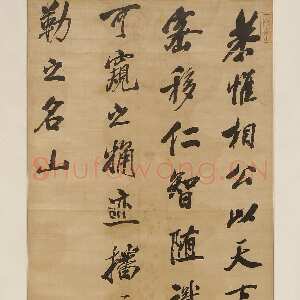 恭惟相公以天下
密移仁智随識
可窺之獨迹攜
勒之名山
Shufawang.CN